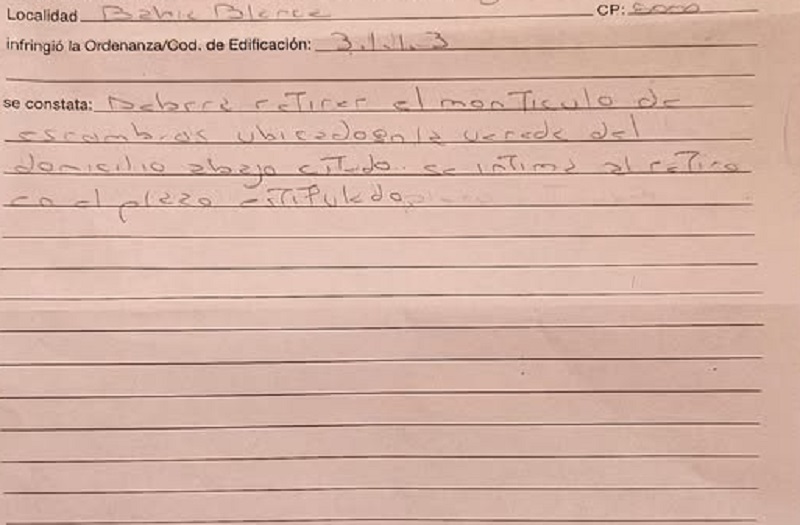 Localidad Bahia Blanca CP: 8000
infringió la Ordenanza/Cod. de Edificación: 3.1.1.3
se constata: Deberá retirar el monticulo de
escombros ubicado en la vereda del
domicilio abajo citado. se intima al retiro
en el plazo estipulado.